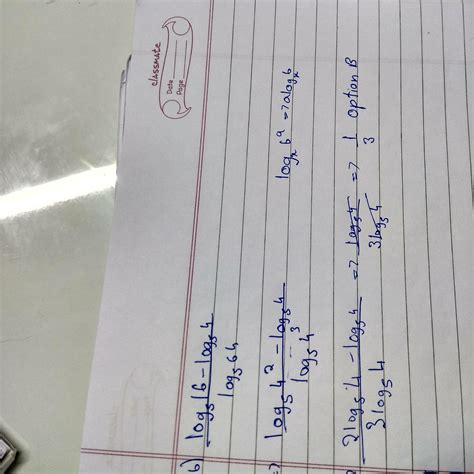 classmate
Date
Page
6) log₅16 - log₅4 / log₅64
=> log₅4² - log₅4 / log₅4³
logₓ6ᵃ => a logₓ6
2log₅4 - log₅4 / 3log₅4 => log₅4 / 3log₅4 => 1/3 option B